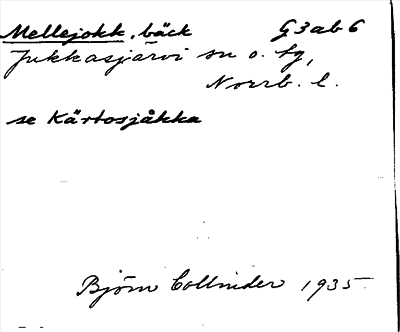 Mellejokk, bäck G3ab6
Jukkasjärvi sn o. tg,
Norrb. l.
se Kärtosjåkka
Björn Collinder 1935